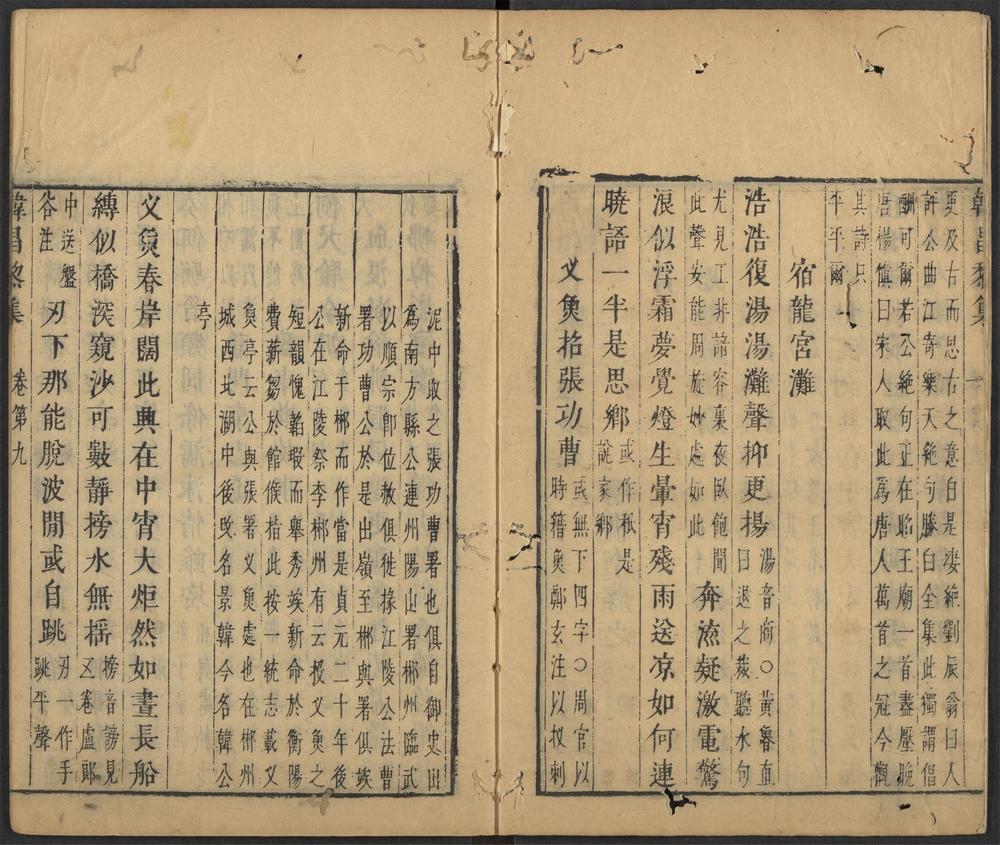 韓昌黎集
更及古而思古之意自是凄絶劉辰翁曰人
許公曲江寄樂天絶句勝白全集此獨謂倡
酬可爾若公絶句正在昭王廟一首盡壓晩
唐楊慎曰宋人取此爲唐人萬首之冠今觀
其詩只
平平爾
宿龍宮灘
浩浩復湯湯灘聲抑更揚
湯音商〇黃魯直
曰退之裁聽水句
尤見工非諳客裏夜臥飽聞
此聲安能周旋妙處如此
奔流疑激電驚
浪似浮霜夢覺燈生暈宵殘雨送凉如何連
曉語一半是思鄉
或作秪是
說家鄉
叉魚招張功曹
或無下四字〇周官以
時籍魚鄭玄注以杈刺
泥中取之張功曹署也俱自御史出
爲南方縣公連州陽山署郴州臨武
以順宗卽位赦俱徙掾江陵公法曹
署功曹公於是出嶺至郴與署俱竢
新命于郴而作當是貞元二十年後
公在江陵祭李郴州有云投叉魚之
短韻愧韜瑕而舉秀竢新命於衡陽
費薪芻於館候指此按一統志載叉
魚亭云公與張署叉魚處也在郴州
城西北湖中後改名景韓今名韓公
亭
叉魚春岸闊此興在中宵大炬然如晝長船
縛似橋深窺沙可數靜搒水無搖
搒音謗見
五卷盧郎
中送盤
谷注
刃下那能脫波間或自跳
刃一作手
跳平聲
韓昌黎集 卷第九